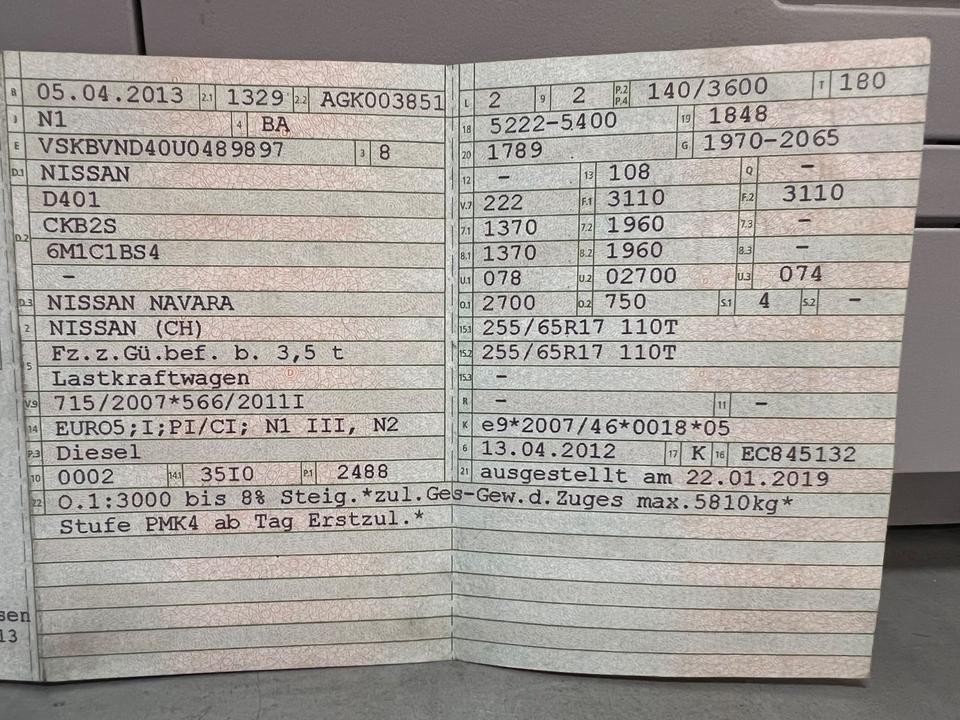 B 05.04.2013 2.1 1329 2.2 AGK003851
J N1 4 BA
E VSKBVND40U0489897 3 8
D.1 NISSAN
D401
D.2 CKB2S
6M1C1BS4
–
D.3 NISSAN NAVARA
2 NISSAN (CH)
5 Fz.z.Gü.bef. b. 3,5 t
Lastkraftwagen
V.9 715/2007*566/2011I
14 EURO5;I;PI/CI; N1 III, N2
P.3 Diesel
10 0002 14.1 35I0 P.1 2488
L 2 9 2 P.2 P.4 140/3600 T 180
18 5222-5400 19 1848
20 1789 G 1970-2065
12 – 13 108 Q –
V.7 222 F.1 3110 F.2 3110
7.1 1370 7.2 1960 7.3 –
8.1 1370 8.2 1960 8.3 –
U.1 078 U.2 02700 U.3 074
O.1 2700 O.2 750 S.1 4 S.2 –
15.1 255/65R17 110T
15.2 255/65R17 110T
15.3 –
R – 11 –
K e9*2007/46*0018*05
6 13.04.2012 17 K 16 EC845132
21 ausgestellt am 22.01.2019
22 O.1:3000 bis 8% Steig.*zul.Ges-Gew.d.Zuges max.5810kg*
Stufe PMK4 ab Tag Erstzul.*
sen
13